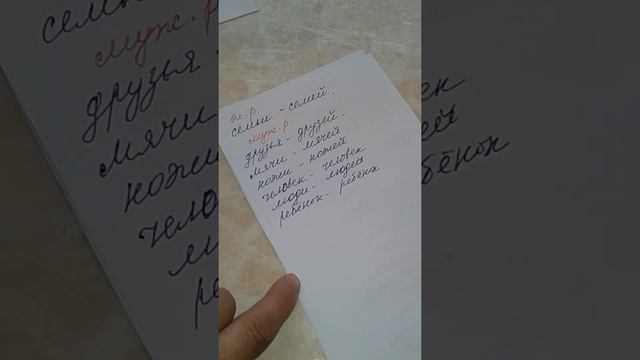 ж.р.
семьи - семей.
муж.р.
друзья - друзей.
мячи - мячей
ножи - ножей
человек - человек
люди - людей
ребёнок - ребёнок